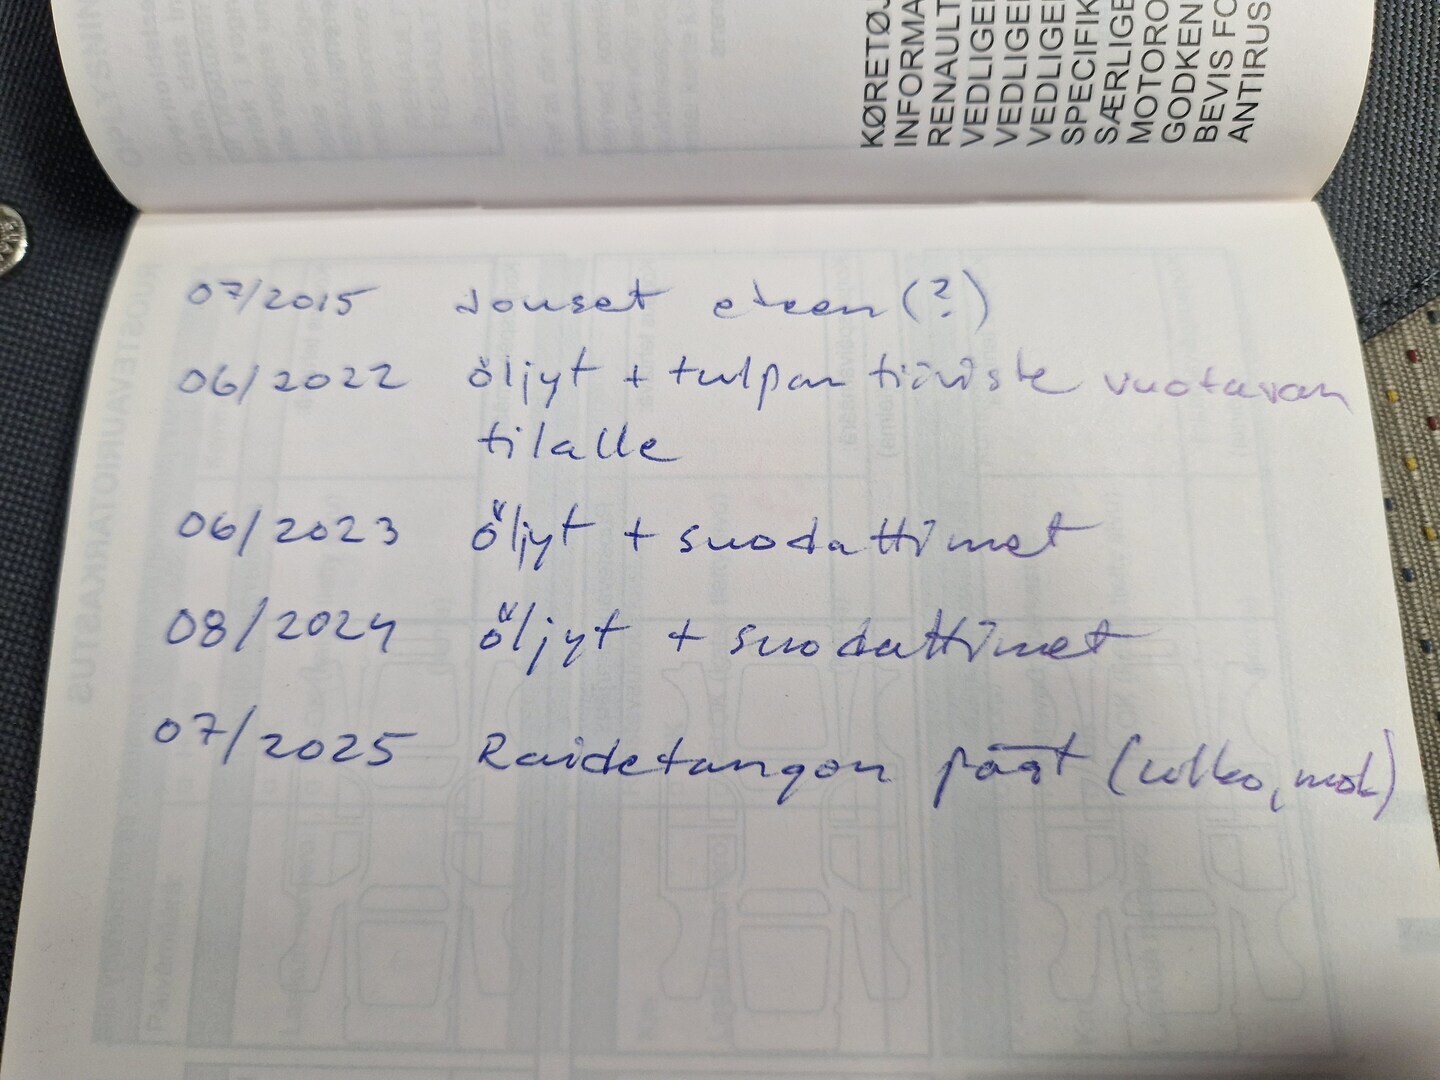 KØRETØJ
INFORMA
RENAULT
VEDLIGE
VEDLIGE
VEDLIGE
SPECIFIK
SÆRLIGE
MOTORO
GODKEN
BEVIS FO
ANTIRUS
07/2015 Jouset eteen (?)
06/2022 öljyt + tulpan tiiviste vuotavan
tilalle
06/2023 öljyt + suodattimet
08/2024 öljyt + suodattimet
07/2025 Raidetangon päät (ulko, mol)
RUOSTEVAURIOTARKASTUS